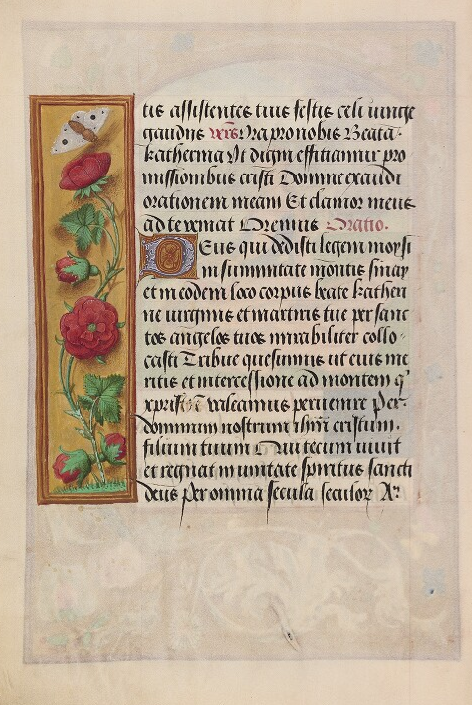 tis assistentes tuis festis celi iunge
gaudiis v̄r̄s Ora pro nobis Beata
katherina Ut digni efficiamur pro
missionibus cristi Domine exaudi
orationem meam Et clamor meus
ad te veniat Oremus Oratio.
Deus qui dedisti legem moysi
in summitate montis sinay
et in eodem loco corpus beate katheri
ne virginis et martiris tue per sanc
tos angelos tuos mirabiliter collo
casti Tribue quesumus ut eius me
ritis et intercessione ad montem q̄
xpristus valeamus pervenire Per
dominum nostrum cristum.
filium tuum Qui tecum vivit
et regnat in unitate spiritus sancti
deus Per omnia secula seculoꝝ A